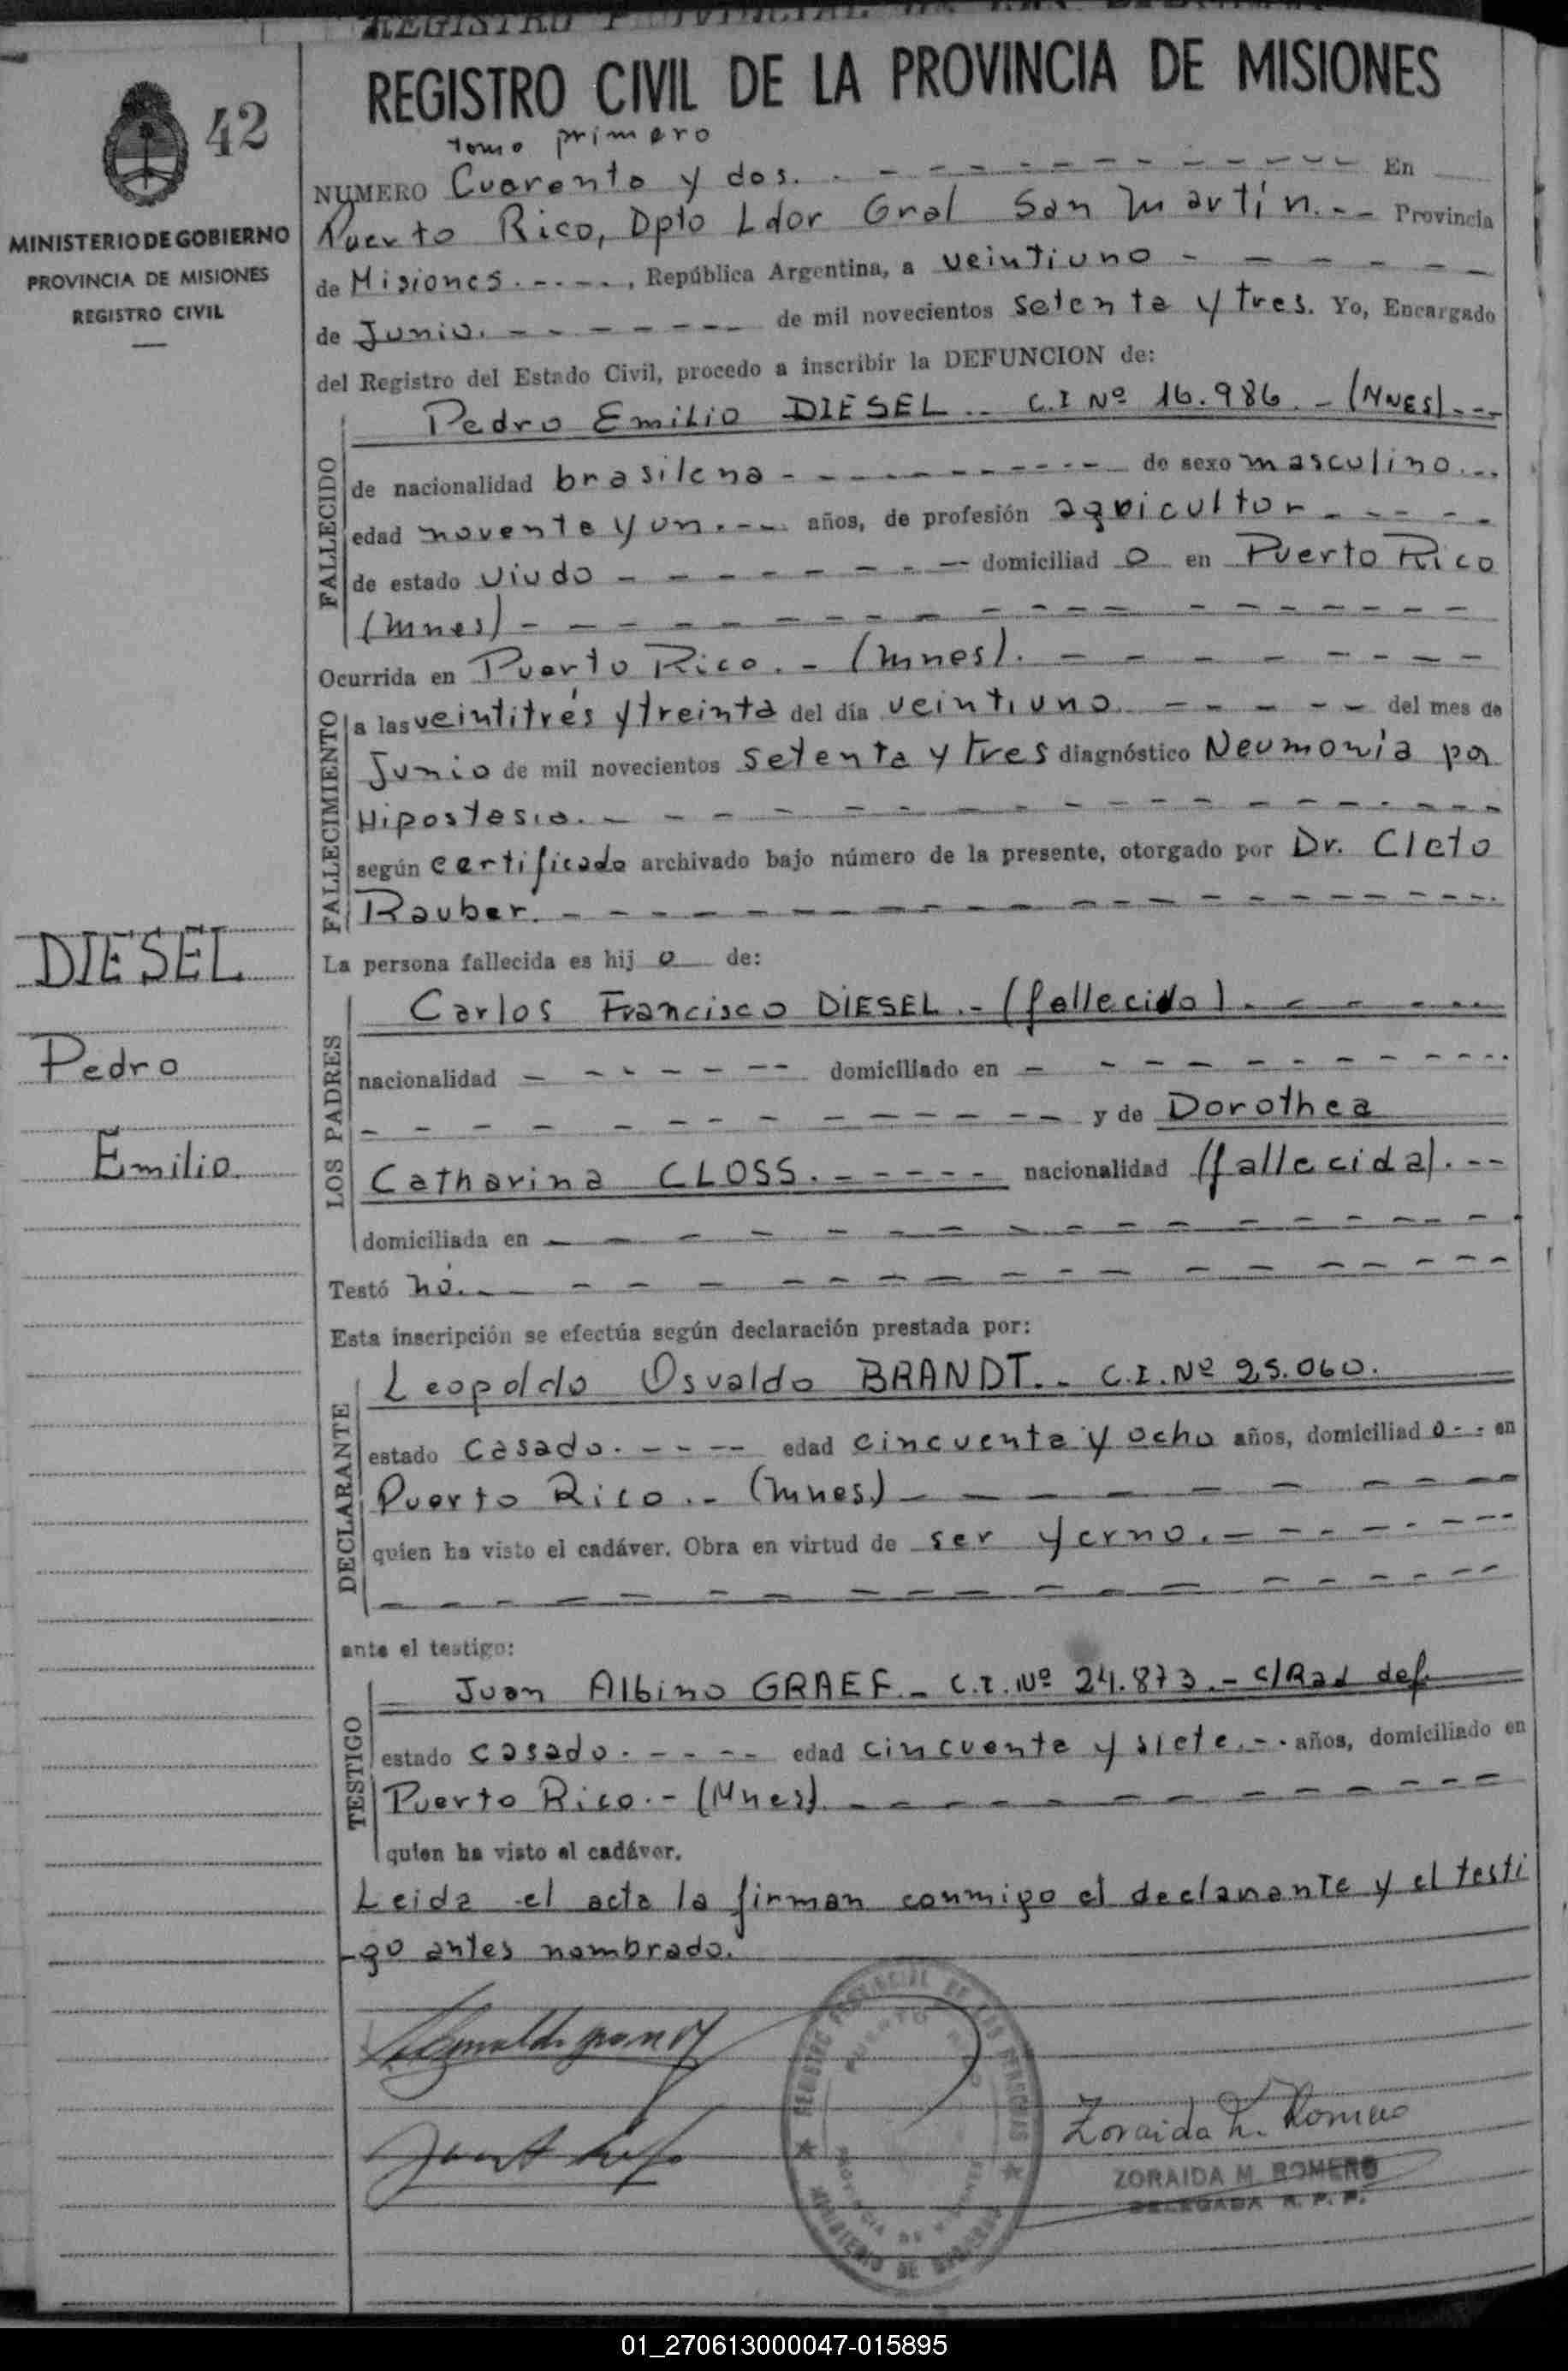 REGISTRO CIVIL DE LA PROVINCIA DE MISIONES
42
MINISTERIO DE GOBIERNO
PROVINCIA DE MISIONES
REGISTRO CIVIL
tomo primero
NUMERO Cuarenta y dos. En
Puerto Rico, Dpto Ldor Gral San Martín. Provincia
de Misiones. , República Argentina, a veintiuno
de Junio. de mil novecientos setenta y tres. Yo, Encargado
del Registro del Estado Civil, procedo a inscribir la DEFUNCION de:
FALLECIDO
Pedro Emilio DIESEL C.I Nº 16.986. - (MNES)
de nacionalidad brasilena de sexo masculino.
edad noventa y un. años, de profesión agricultor
de estado viudo domiciliad o en Puerto Rico
(Mnes)
Ocurrida en Puerto Rico. - (Mnes).
FALLECIMIENTO
a las veintitrés y treinta del día veintiuno del mes de
Junio de mil novecientos setenta y tres diagnóstico Neumonía por
Hipostesia.
según certificado archivado bajo número de la presente, otorgado por Dr. Cleto
Rauber.
DIESEL
Pedro
Emilio.
La persona fallecida es hij o de:
LOS PADRES
Carlos Francisco DIESEL. - (fallecido).
nacionalidad domiciliado en
y de Dorothea
Catharina CLOSS. nacionalidad (fallecida).
domiciliada en
Testó nó.
Esta inscripción se efectúa según declaración prestada por:
DECLARANTE
Leopoldo Osvaldo BRANDT. - C.I. Nº 25.060.
estado casado. edad cincuenta y ocho años, domiciliad o en
Puerto Rico. - (Mnes)
quien ha visto el cadáver. Obra en virtud de ser yerno.
ante el testigo:
TESTIGO
Juan Albino GRAEF. - C.I. Nº 24.873. - c/Rad def.
estado casado. edad cincuenta y siete. años, domiciliado en
Puerto Rico. - (Mnes).
quien ha visto el cadáver.
Leida el acta la firman conmigo el declarante y el testi
-go antes nombrado.
REGISTRO PROVINCIAL DE LAS PERSONAS
PUERTO RICO
PROVINCIA DE MISIONES
MINISTERIO DE GOBIERNO
Zoraida M. Romero
ZORAIDA M. ROMERO
DELEGADA R. P. P.
01_270613000047-015895